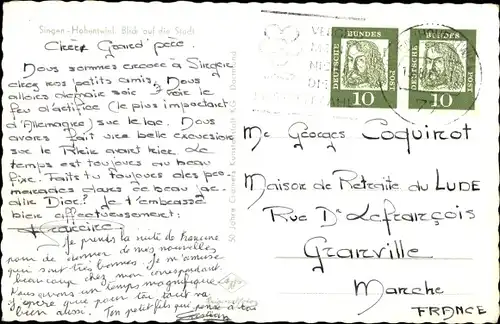 Singen-Hohentwiel. Blick auf die Stadt
Cher Grand père.
Nous sommes encore à Singen
chez nos petits amis. Nous
allons demain soir voir le
feu d'artifice (le plus important
d'Allemagne) sur le lac. Nous
avons fait une belle excursion
sur le Rhin avant hier. Le
temps est toujours au beau
fixe. Fais tu toujours des pro-
menades dans ce beau jar-
din Dior? Je t'embrasse
bien affectueusement:
Francine
Je prends la suite de Francine
pour te donner de mes nouvelles
qui sont très bonnes. Je m'amuse
beaucoup chez mon correspondant
Nous avons un temps magnifique
J'espère que pour toi tout va
bien aussi. Ton petit fils qui pense à toi
50 Jahre Cramers Kunstanstalt KG Dortmund
DEUTSCHE BUNDESPOST
10
DEUTSCHE BUNDESPOST
10
Mr Georges Coquirot
Maison de Retraite du LUDE
Rue Dr Lefrançois
Granville
Manche
FRANCE